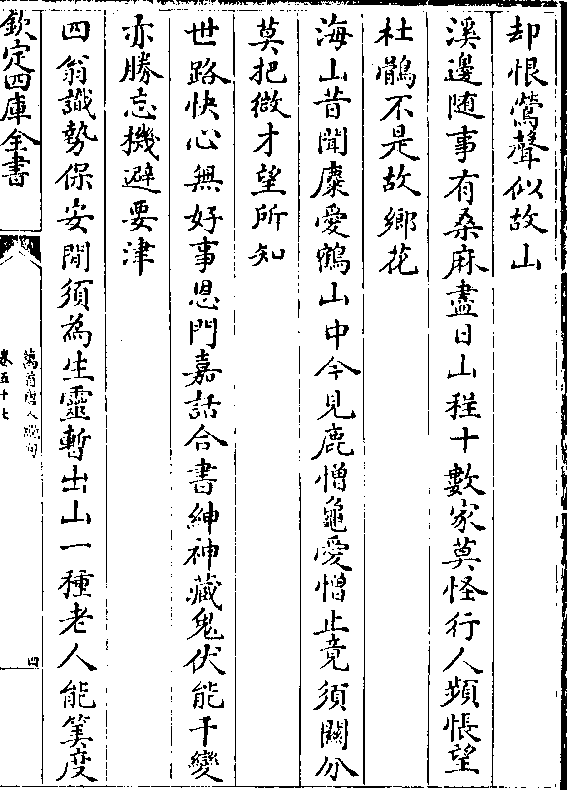 却恨鶯聲似故山
溪邊隨事有桑麻盡日山程十數家莫怪行人頻悵望
杜鵑不是故鄉花
海山昔聞麋愛鶴山中今見鹿憎龜愛憎止竟須關分
莫把微才望所知
世路快心無好事恩門嘉話合書紳神藏鬼伏能千變
亦勝忘機避要津
四翁識勢保安閒須為生靈暫出山一種老人能筭度
欽定四庫全書
萬首唐人絶句
卷五十七
四